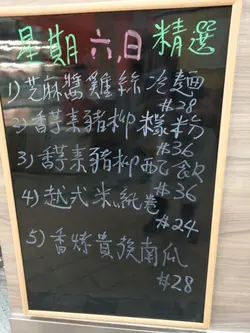 星期六,日精選
1)芝麻醬雞絲冷麵
#28
2)香芋素豬柳檬粉
#36
3)香芋素豬柳西飯
#36
4)越式米紙卷
#24
5)香煉貴族南瓜
#28